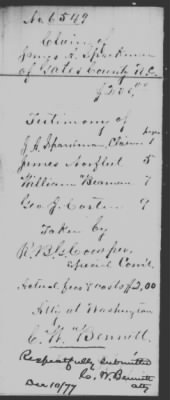 No 6549
Claim of
James A. Sparkman
of Gates County N.C.
$200.00
Testimony of
J. A. Sparkman, Claim 1
James Norfleet 5
William Beaman 7
Geo J. Costen 9
Taken by
R. B. G. Cowper
Special Com'r.
Actual fees & costs $2.00
Atty at Washington
C. W. Bennett.
Respectfully submitted
C. W. Bennett
atty
Dec 10/77